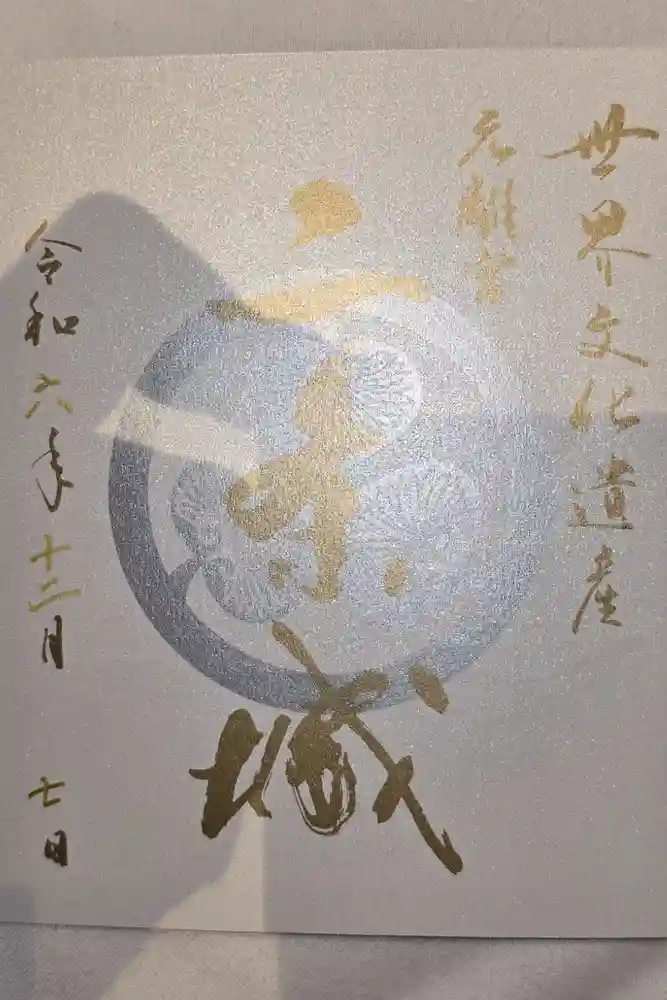 世界文化遺産
元離宮
二条城
令和六年十二月 七日